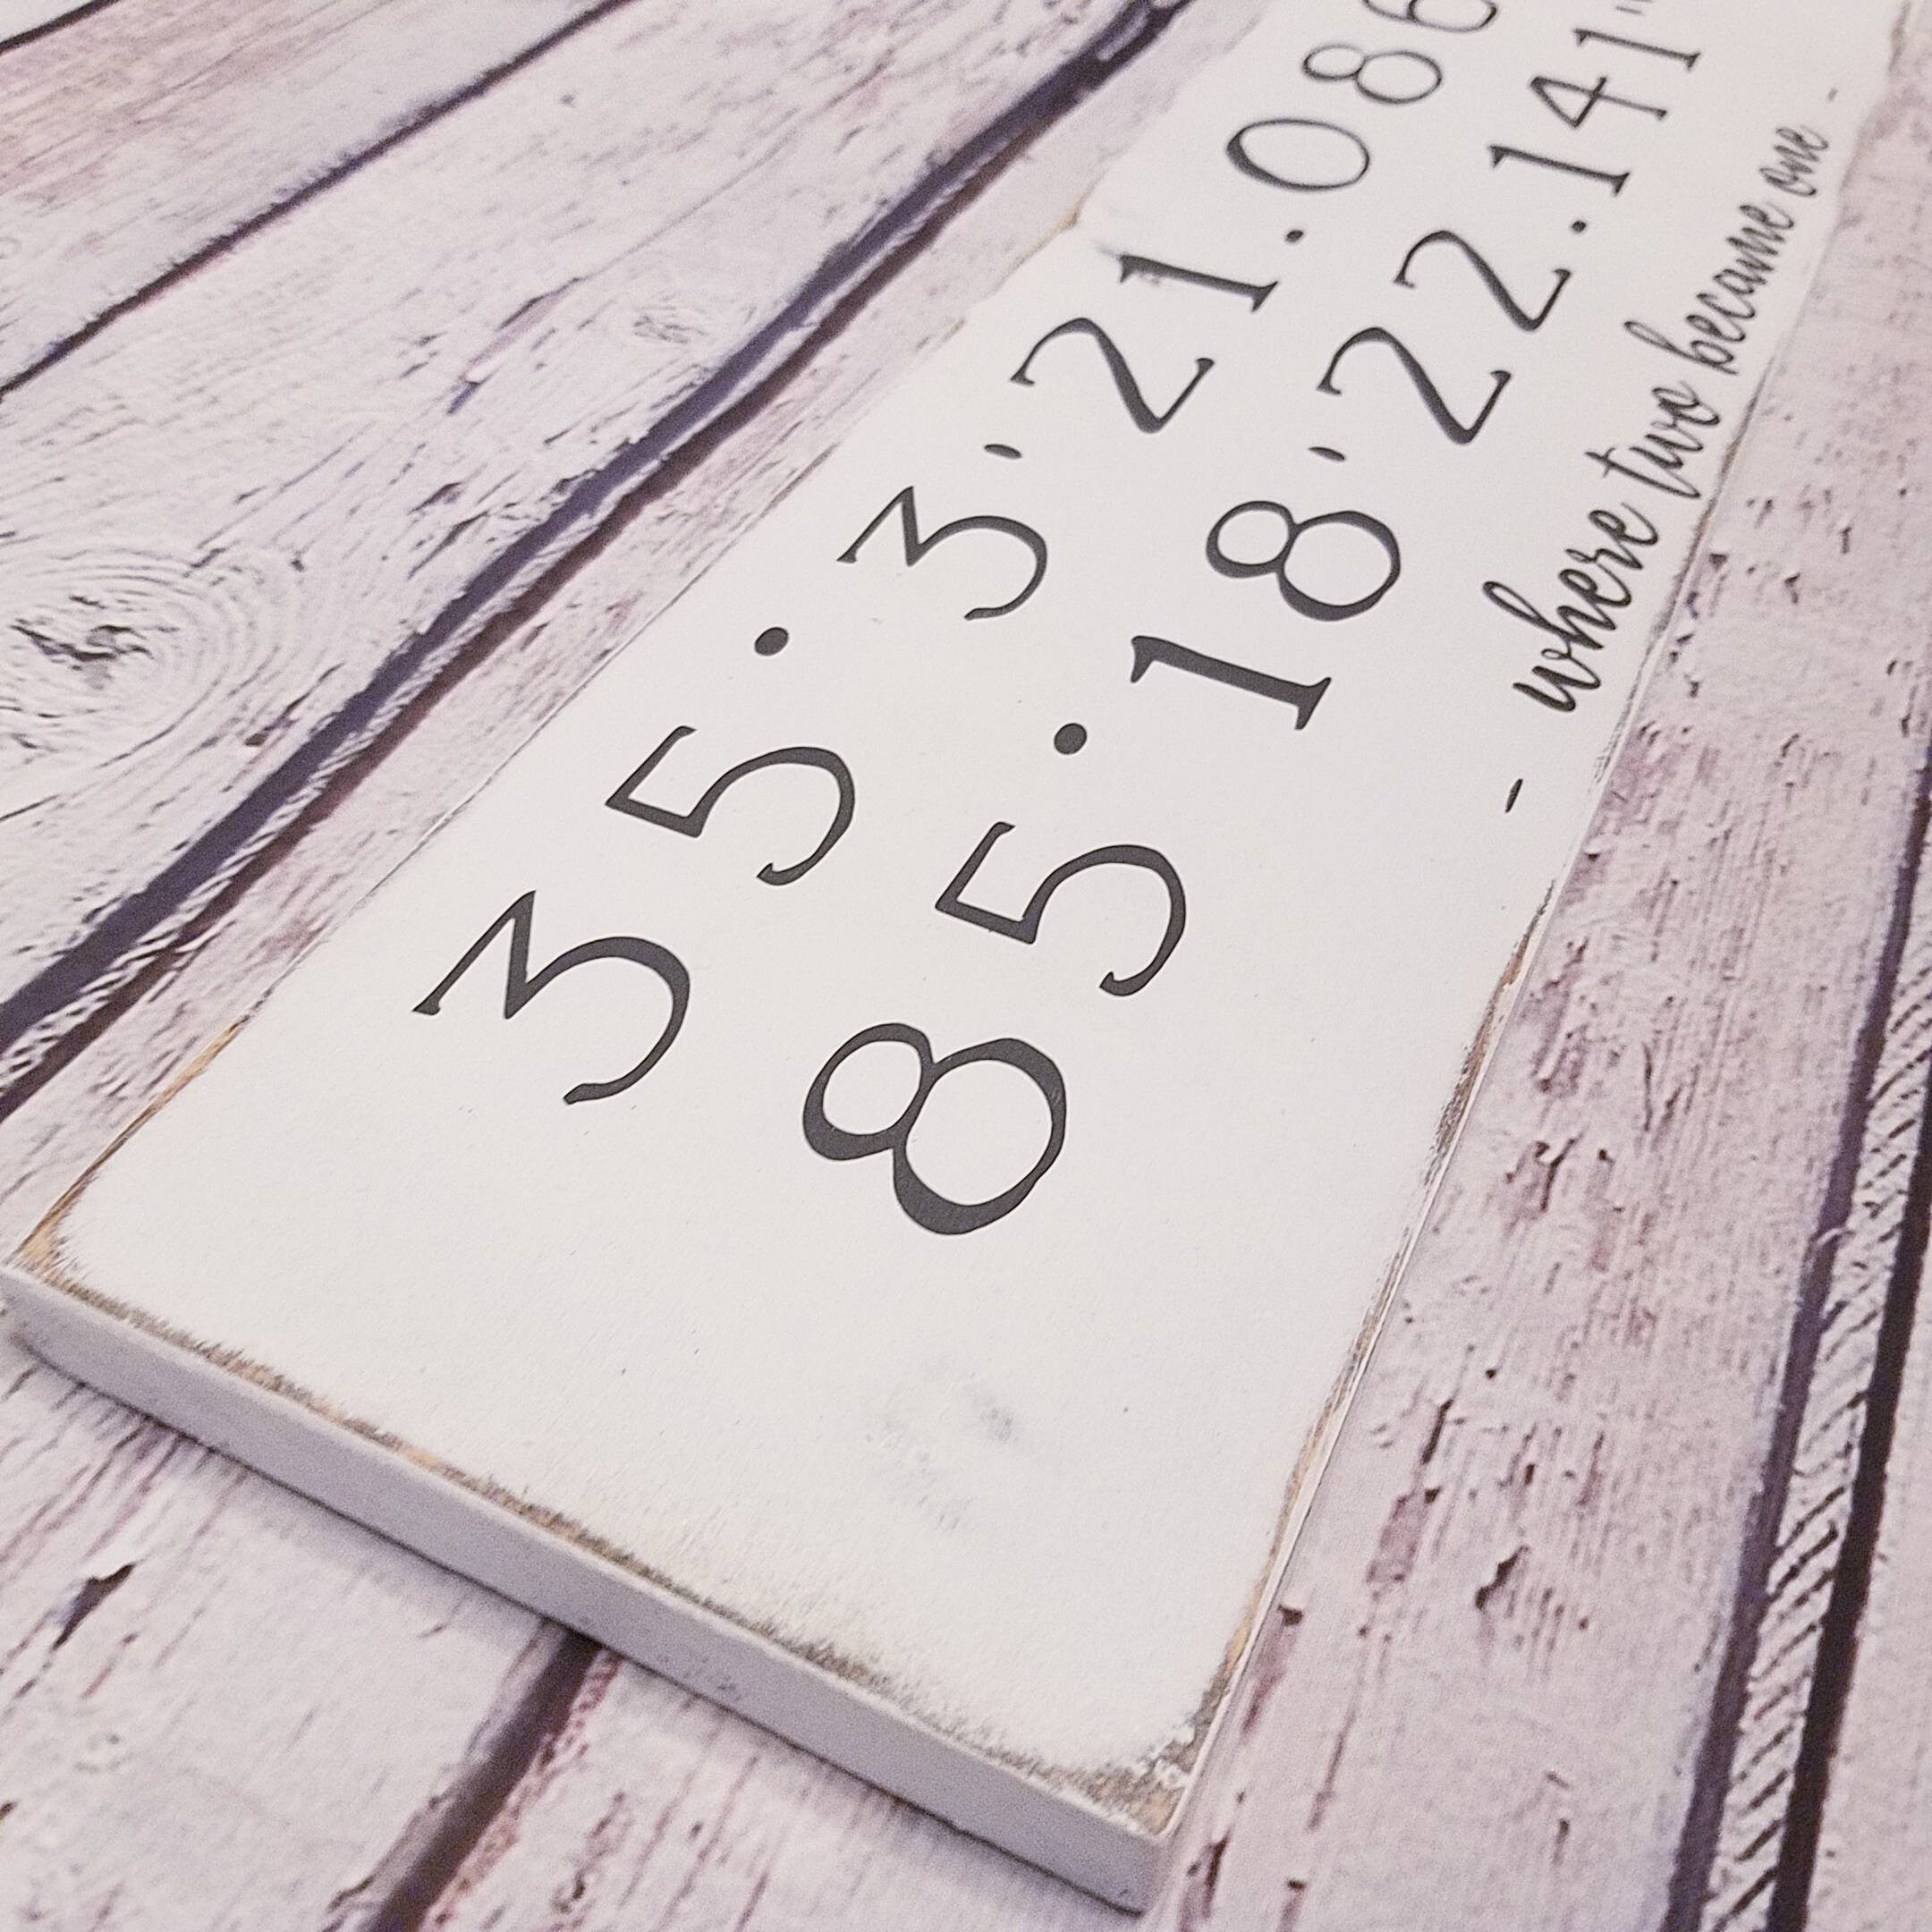 35·3'21.086
85·18'22.141"
- where two became one -